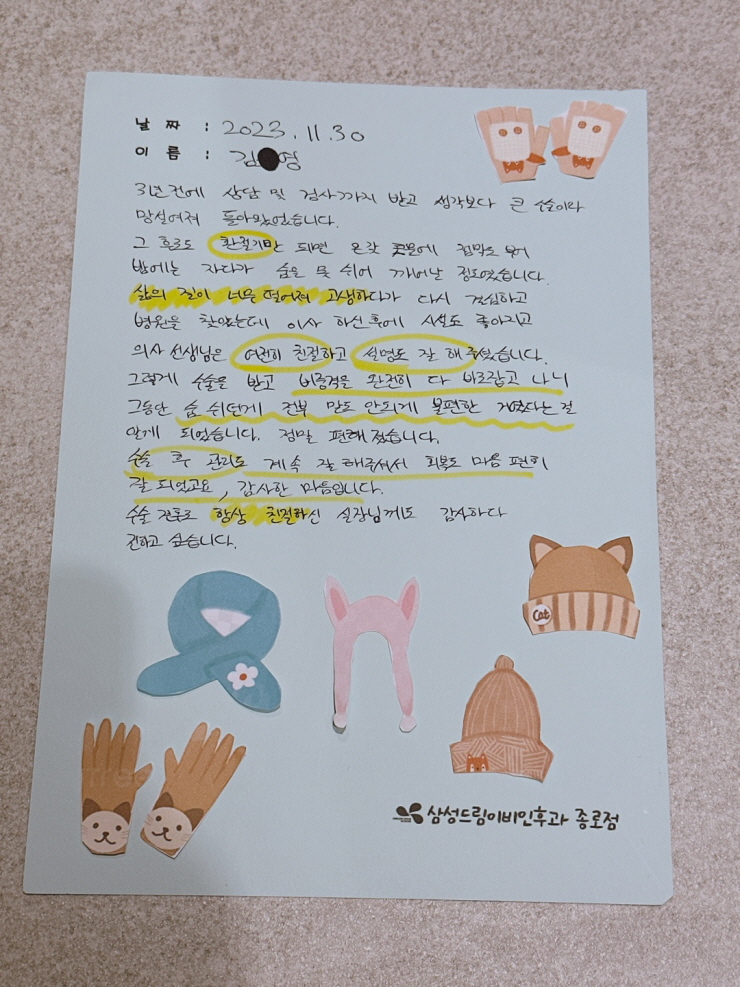 날 짜 : 2023. 11. 30
이 름 : 김 영
3년전에 상담 및 검사까지 받고 생각보다 큰 수술이라
망설여져 돌아왔었습니다.
그 후로도 환절기만 되면 온갖 콧물에 점막도 부어
밤에는 자다가 숨을 못 쉬어 깨어날 정도였습니다.
삶의 질이 너무 떨어져 고생하다가 다시 결심하고
병원을 찾았는데 이사 하신 후에 시설도 좋아지고
의사 선생님은 여전히 친절하고 설명도 잘 해 주셨습니다.
그렇게 수술을 받고 비중격을 완전히 다 바로잡고 나니
그동안 숨 쉬던게 전부 말도 안되게 불편한 거였다는 걸
알게 되었습니다. 정말 편해 졌습니다.
수술 후 관리도 계속 잘 해주셔서 회복도 마음 편히
잘 되었고요, 감사한 마음입니다.
수술 전후로 항상 친절하신 실장님께도 감사하다
전하고 싶습니다.
Cat
삼성드림이비인후과 종로점